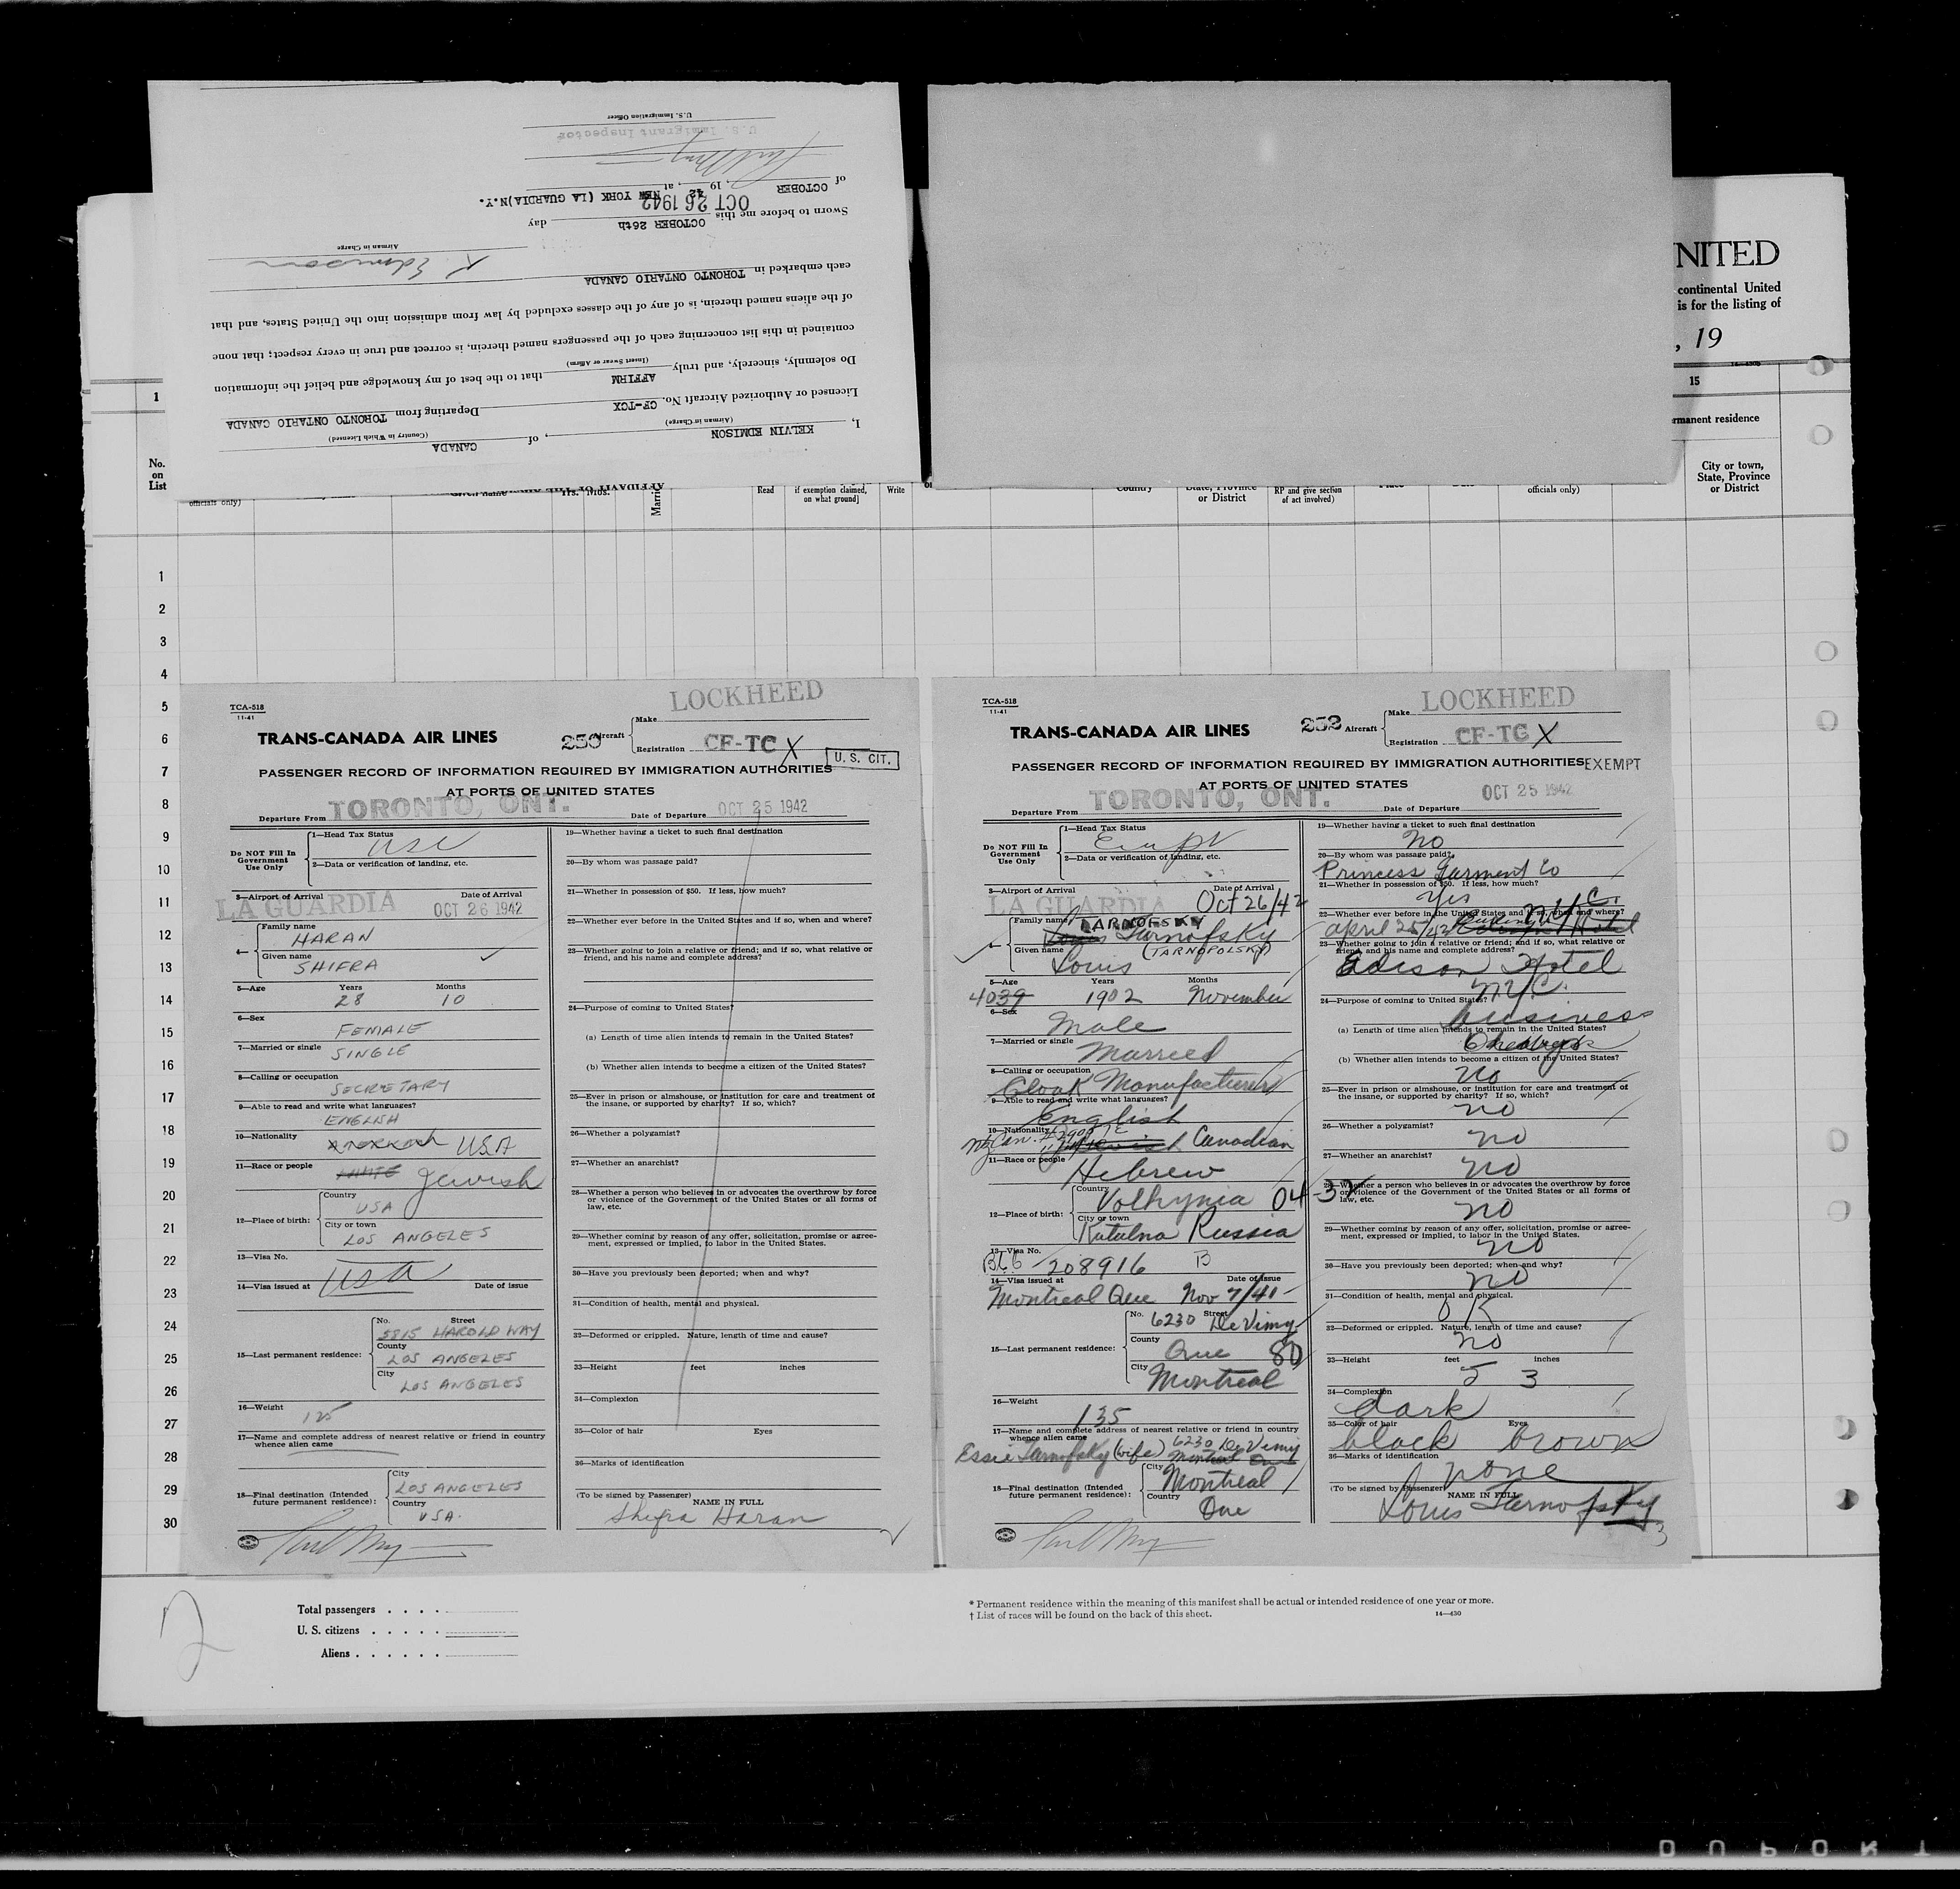 U.S. Immigration Officer
U.S. Immigrant Inspector
of OCTOBER, 19 42, at NEW YORK (LA GUARDIA) N.Y.
OCT 26 1942
Sworn to before me this OCTOBER 26th day
Airman in Charge
K. Edmison
each embarked in TORONTO ONTARIO CANADA
of the aliens named therein, is of any of the classes excluded by law from admission into the United States, and that
contained in this list concerning each of the passengers named therein, is correct and true in every respect; that none
(Insert Swear or Affirm)
Do solemnly, sincerely, and truly AFFIRM that to the best of my knowledge and belief the information
Licensed or Authorized Aircraft No. CF-TCX Departing from TORONTO ONTARIO CANADA
(Airman in Charge) (Country in Which Licensed)
I, KELVIN EDMISON, of CANADA
NITED
continental United
is for the listing of
, 19
1
15
rmanent residence
No.
on
List
City or town,
State, Province
or District
officials only)
Read
if exemption claimed,
on what ground]
Write
Country
State, Province
or District
RP and give section
of act involved)
officials only)
1
2
3
4
5
6
7
8
9
10
11
12
13
14
15
16
17
18
19
20
21
22
23
24
25
26
27
28
29
30
TCA-518
11-41
LOCKHEED
TRANS-CANADA AIR LINES
250 Aircraft
Make
Registration CF-TC X
U. S. CIT.
PASSENGER RECORD OF INFORMATION REQUIRED BY IMMIGRATION AUTHORITIES
AT PORTS OF UNITED STATES
Departure From TORONTO, ONT. Date of Departure OCT 25 1942
Do NOT Fill In
Government
Use Only
1—Head Tax Status
USC
2—Data or verification of landing, etc.
3—Airport of Arrival Date of Arrival
LA GUARDIA OCT 26 1942
Family name
HARAN
Given name
SHIFRA
5—Age Years Months
28 10
6—Sex
FEMALE
7—Married or single
SINGLE
8—Calling or occupation
SECRETARY
9—Able to read and write what languages?
ENGLISH
10—Nationality
USA
11—Race or people
WHITE Jewish
12—Place of birth:
Country
USA
City or town
LOS ANGELES
13—Visa No.
USA
14—Visa issued at Date of issue
15—Last permanent residence:
No. Street
5815 HAROLD WAY
County
LOS ANGELES
City
LOS ANGELES
16—Weight
125
17—Name and complete address of nearest relative or friend in country
whence alien came
18—Final destination (Intended
future permanent residence):
City
LOS ANGELES
Country
USA.
19—Whether having a ticket to such final destination
20—By whom was passage paid?
21—Whether in possession of $50. If less, how much?
22—Whether ever before in the United States and if so, when and where?
23—Whether going to join a relative or friend; and if so, what relative or
friend, and his name and complete address?
24—Purpose of coming to United States?
(a) Length of time alien intends to remain in the United States?
(b) Whether alien intends to become a citizen of the United States?
25—Ever in prison or almshouse, or institution for care and treatment of
the insane, or supported by charity? If so, which?
26—Whether a polygamist?
27—Whether an anarchist?
28—Whether a person who believes in or advocates the overthrow by force
or violence of the Government of the United States or all forms of
law, etc.
29—Whether coming by reason of any offer, solicitation, promise or agree-
ment, expressed or implied, to labor in the United States.
30—Have you previously been deported; when and why?
31—Condition of health, mental and physical.
32—Deformed or crippled. Nature, length of time and cause?
33—Height feet inches
34—Complexion
35—Color of hair Eyes
36—Marks of identification
(To be signed by Passenger) NAME IN FULL
Shifra Haran
TCA-518
11-41
LOCKHEED
TRANS-CANADA AIR LINES
252 Aircraft
Make
Registration CF-TC X
PASSENGER RECORD OF INFORMATION REQUIRED BY IMMIGRATION AUTHORITIES EXEMPT
AT PORTS OF UNITED STATES
Departure From TORONTO, ONT. Date of Departure OCT 25 1942
Do NOT Fill In
Government
Use Only
1—Head Tax Status
2—Data or verification of landing, etc.
3—Airport of Arrival Date of Arrival
LA GUARDIA Oct 26/42
Family name TARNOFSKY
Louis Tarnofsky
Given name (TARNOPOLSKY)
Louis
5—Age Years Months
40 39 1902 November
6—Sex
Male
7—Married or single
Married
8—Calling or occupation
Cloak Manufacturer
9—Able to read and write what languages?
English
10—Nationality
Canadian
11—Race or people
Hebrew
12—Place of birth:
Country
Volhynia 04-32
City or town
Katulna Russia
13—Visa No.
BCC 208916 B
14—Visa issued at Date of issue
Montreal Que Nov 7/41
15—Last permanent residence:
No. 6230 Street De Vimy
County
Que 80
City
Montreal
16—Weight
135
17—Name and complete address of nearest relative or friend in country
whence alien came
Essie Tarnofsky (wife) 6230 De Vimy
Montreal Que
18—Final destination (Intended
future permanent residence):
City
Montreal
Country
Que
19—Whether having a ticket to such final destination
No
20—By whom was passage paid?
Princess Garment Co
21—Whether in possession of $50. If less, how much?
Yes
22—Whether ever before in the United States and if so, when and where?
April 25/42 N.Y.C. Hotel
23—Whether going to join a relative or friend; and if so, what relative or
friend, and his name and complete address?
Edison Hotel
N.Y.C.
24—Purpose of coming to United States?
business
(a) Length of time alien intends to remain in the United States?
(b) Whether alien intends to become a citizen of the United States?
No
25—Ever in prison or almshouse, or institution for care and treatment of
the insane, or supported by charity? If so, which?
no
26—Whether a polygamist?
no
27—Whether an anarchist?
no
28—Whether a person who believes in or advocates the overthrow by force
or violence of the Government of the United States or all forms of
law, etc.
no
29—Whether coming by reason of any offer, solicitation, promise or agree-
ment, expressed or implied, to labor in the United States.
no
30—Have you previously been deported; when and why?
no
31—Condition of health, mental and physical.
OK
32—Deformed or crippled. Nature, length of time and cause?
no
33—Height feet inches
5 3
34—Complexion
dark
35—Color of hair Eyes
black brown
36—Marks of identification
none
(To be signed by Passenger) NAME IN FULL
Louis Tarnofsky
3
2
Total passengers . . . .
U. S. citizens . . . . .
Aliens . . . . . .
* Permanent residence within the meaning of this manifest shall be actual or intended residence of one year or more.
† List of races will be found on the back of this sheet. 14—430